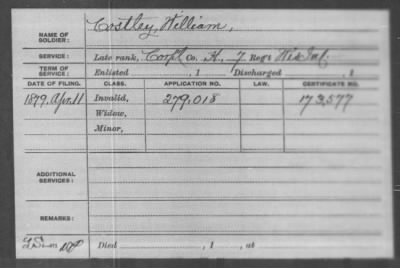 NAME OF SOLDIER: Costley, William,
SERVICE: Late rank, Corp'l Co. K, 7 Reg't Wis Inf.
TERM OF SERVICE: Enlisted , 1 Discharged , 1
DATE OF FILING. CLASS. APPLICATION NO. LAW. CERTIFICATE NO.
1879, Apr. 11 Invalid, 279.018 173,577
Widow,
Minor,
ADDITIONAL SERVICES:
REMARKS:
Died , 1 , at